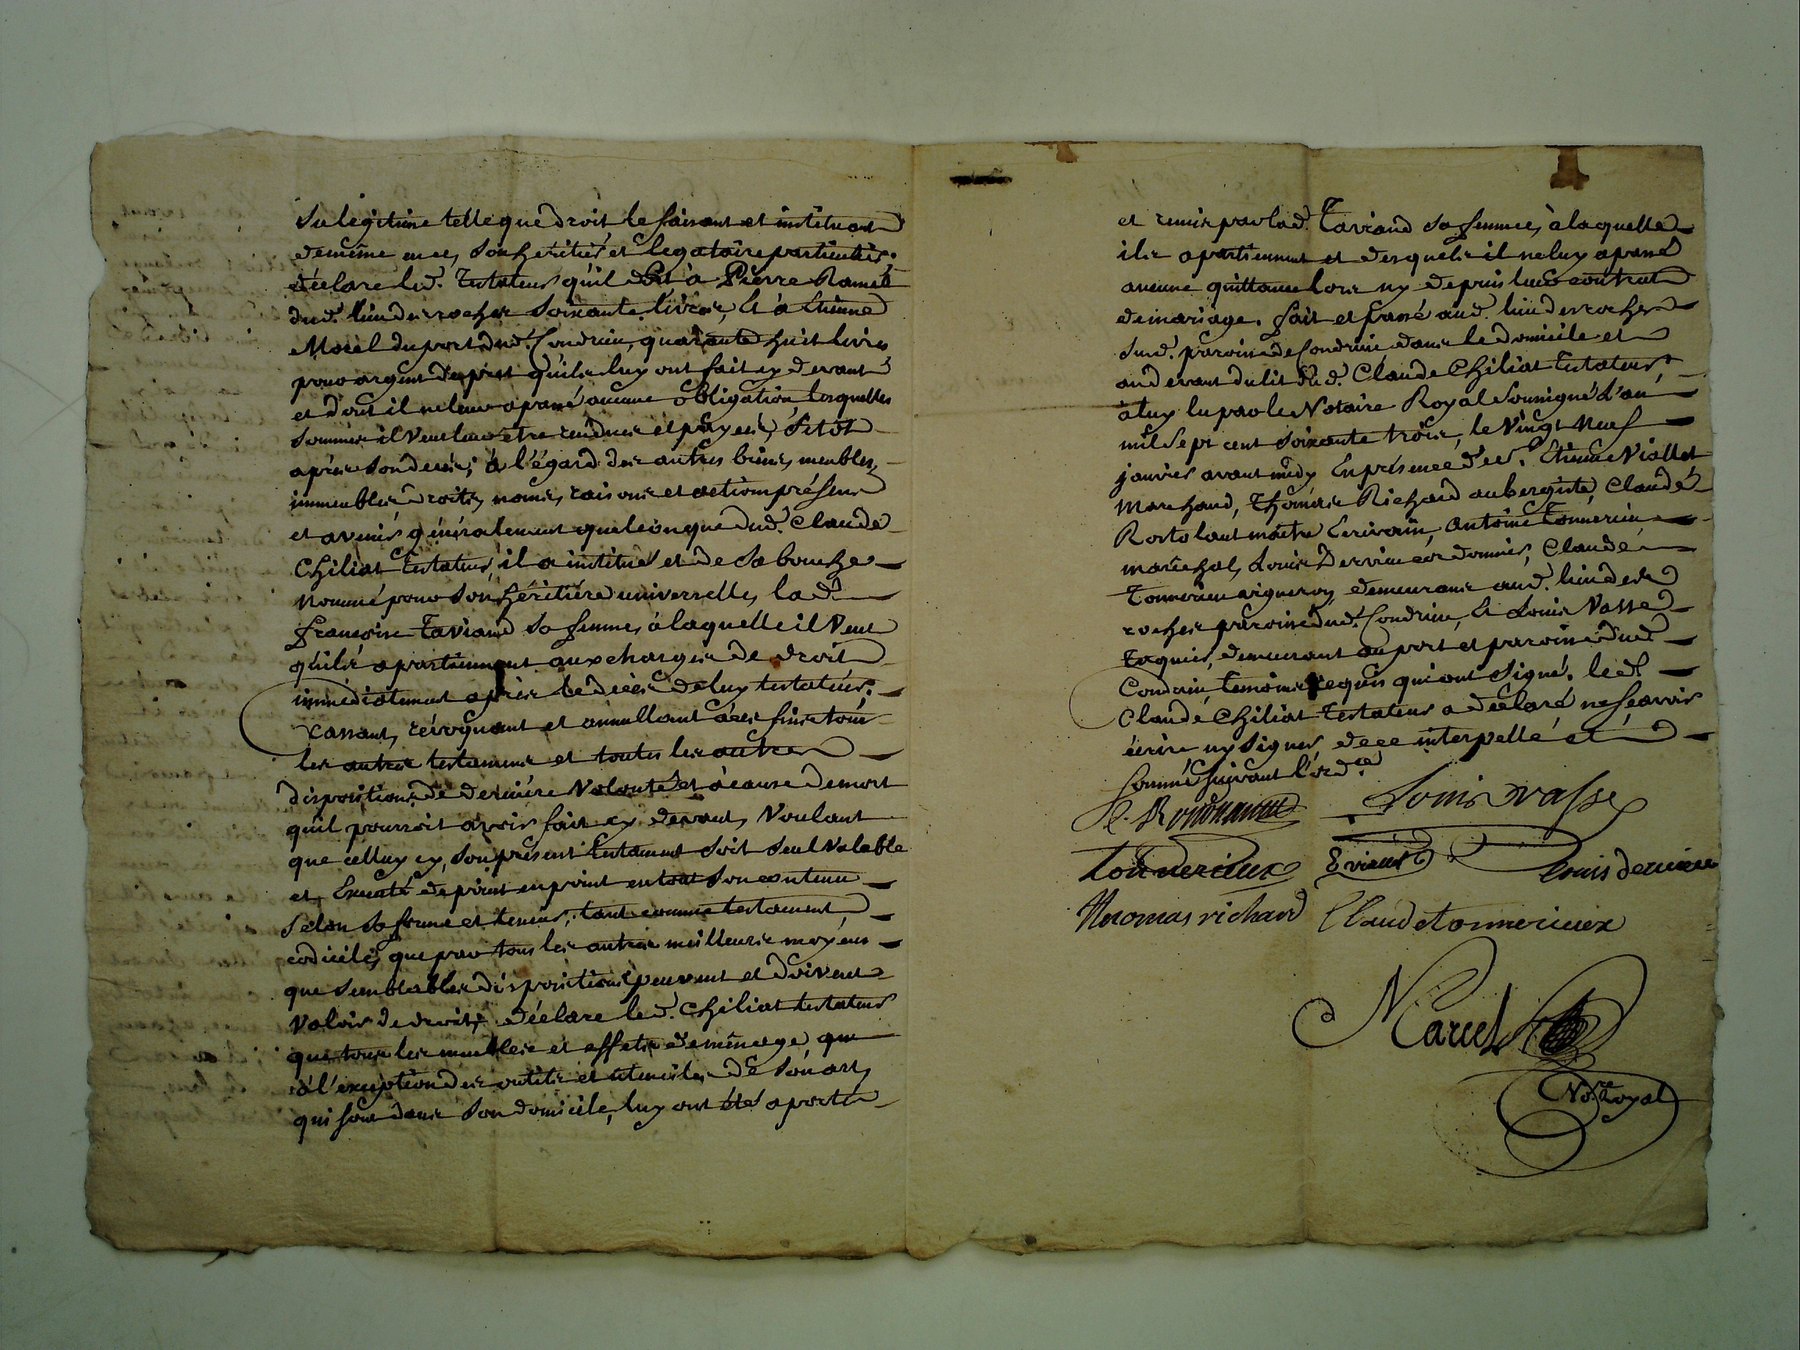 sa legitime telle que droit le faisant et instituant
de même en ce, son heritier et legataire particulier.
déclare led. Testateur qu'il doit à Pierre Ramet
dud. lieu des roches soixante livres, Et à Etienne
Morel du port dud. Condrieu, quarante huit livres
pour argent de prest qu'ils luy ont fait cy devant
et dont il ne leur a passé aucune obligation lesquelles
sommes il veut leur etre rendues et payées, sitôt
après son decès; à l'égard des autres biens, meubles,
immeubles droits, noms, raisons et actions présens
et avenir généralement quelconque dud. Claude
Chiliat Testateur, il a institué et de sa bouche
nommé pour son héritière universelle, lad.
françoise Taviand sa femme, à laquelle il veut
qu'ils apartiennent aux charges de droit
immédiatement après le decès de luy testateur.
Cassant, révoquant et annullant à ces fins tous
les autres testamens et toutes les autres
dispositions de dernière volonté et à cause de mort
qu'il pourroit avoir fait cy devant, Voulant
que celluy cy, son présent testament soit seul valable
et Executé de point en point en tout son contenu
selon sa forme et teneur, tant comme testament,
codicile, que par tous les autres meilleurs moyens
que semblables dispositions peuvent et doivent
valoir de droit, déclare led. Chiliat testateur
que tous les meubles et effets de ménage que
à l'exception des outils et utensiles de son art,
qui sont dans son domicile, luy ont étés aportés
et remis par lad. Taviand sa femme, à laquelle
ils apartiennent et desquels il ne luy a passé
aucune quittance lors ny depuis leur contrat
de mariage. fait et passé aud. lieu des roches
sud. paroisse de Condrieu dans le domicile et
au devant du lit dud. Claude Chiliat Testateur,
à luy lu par le Notaire Royal soussigné L'an
mil sept cent soixante trois, le Vingt Neuf
janvier avant midy En présence de sr. Etienne Viallet
marchand, Thomas Richard aubergiste, Claude
Rostolant maitre Ecrivain, Antoine Tonnerieu
maréchal, Louis Dervieu cordonnier, Claude
Tonnerieu vigneron demeurans aud. lieu des
roches paroisse dud. Condrieu, Et Louis Vasse
Taquier, demeurant au port et paroisse dud.
Condrieu temoins requis qui ont signé. led.
Claude Chiliat Testateur a déclaré ne sçavoir
écrire ny signer, de ce interpellé et
sommé suivant l'ord.ce
Louis vasse
tonnerieux E viallet Louis dervieu
thomas richard Claude tonnerieux
Marcel
No.re Royal